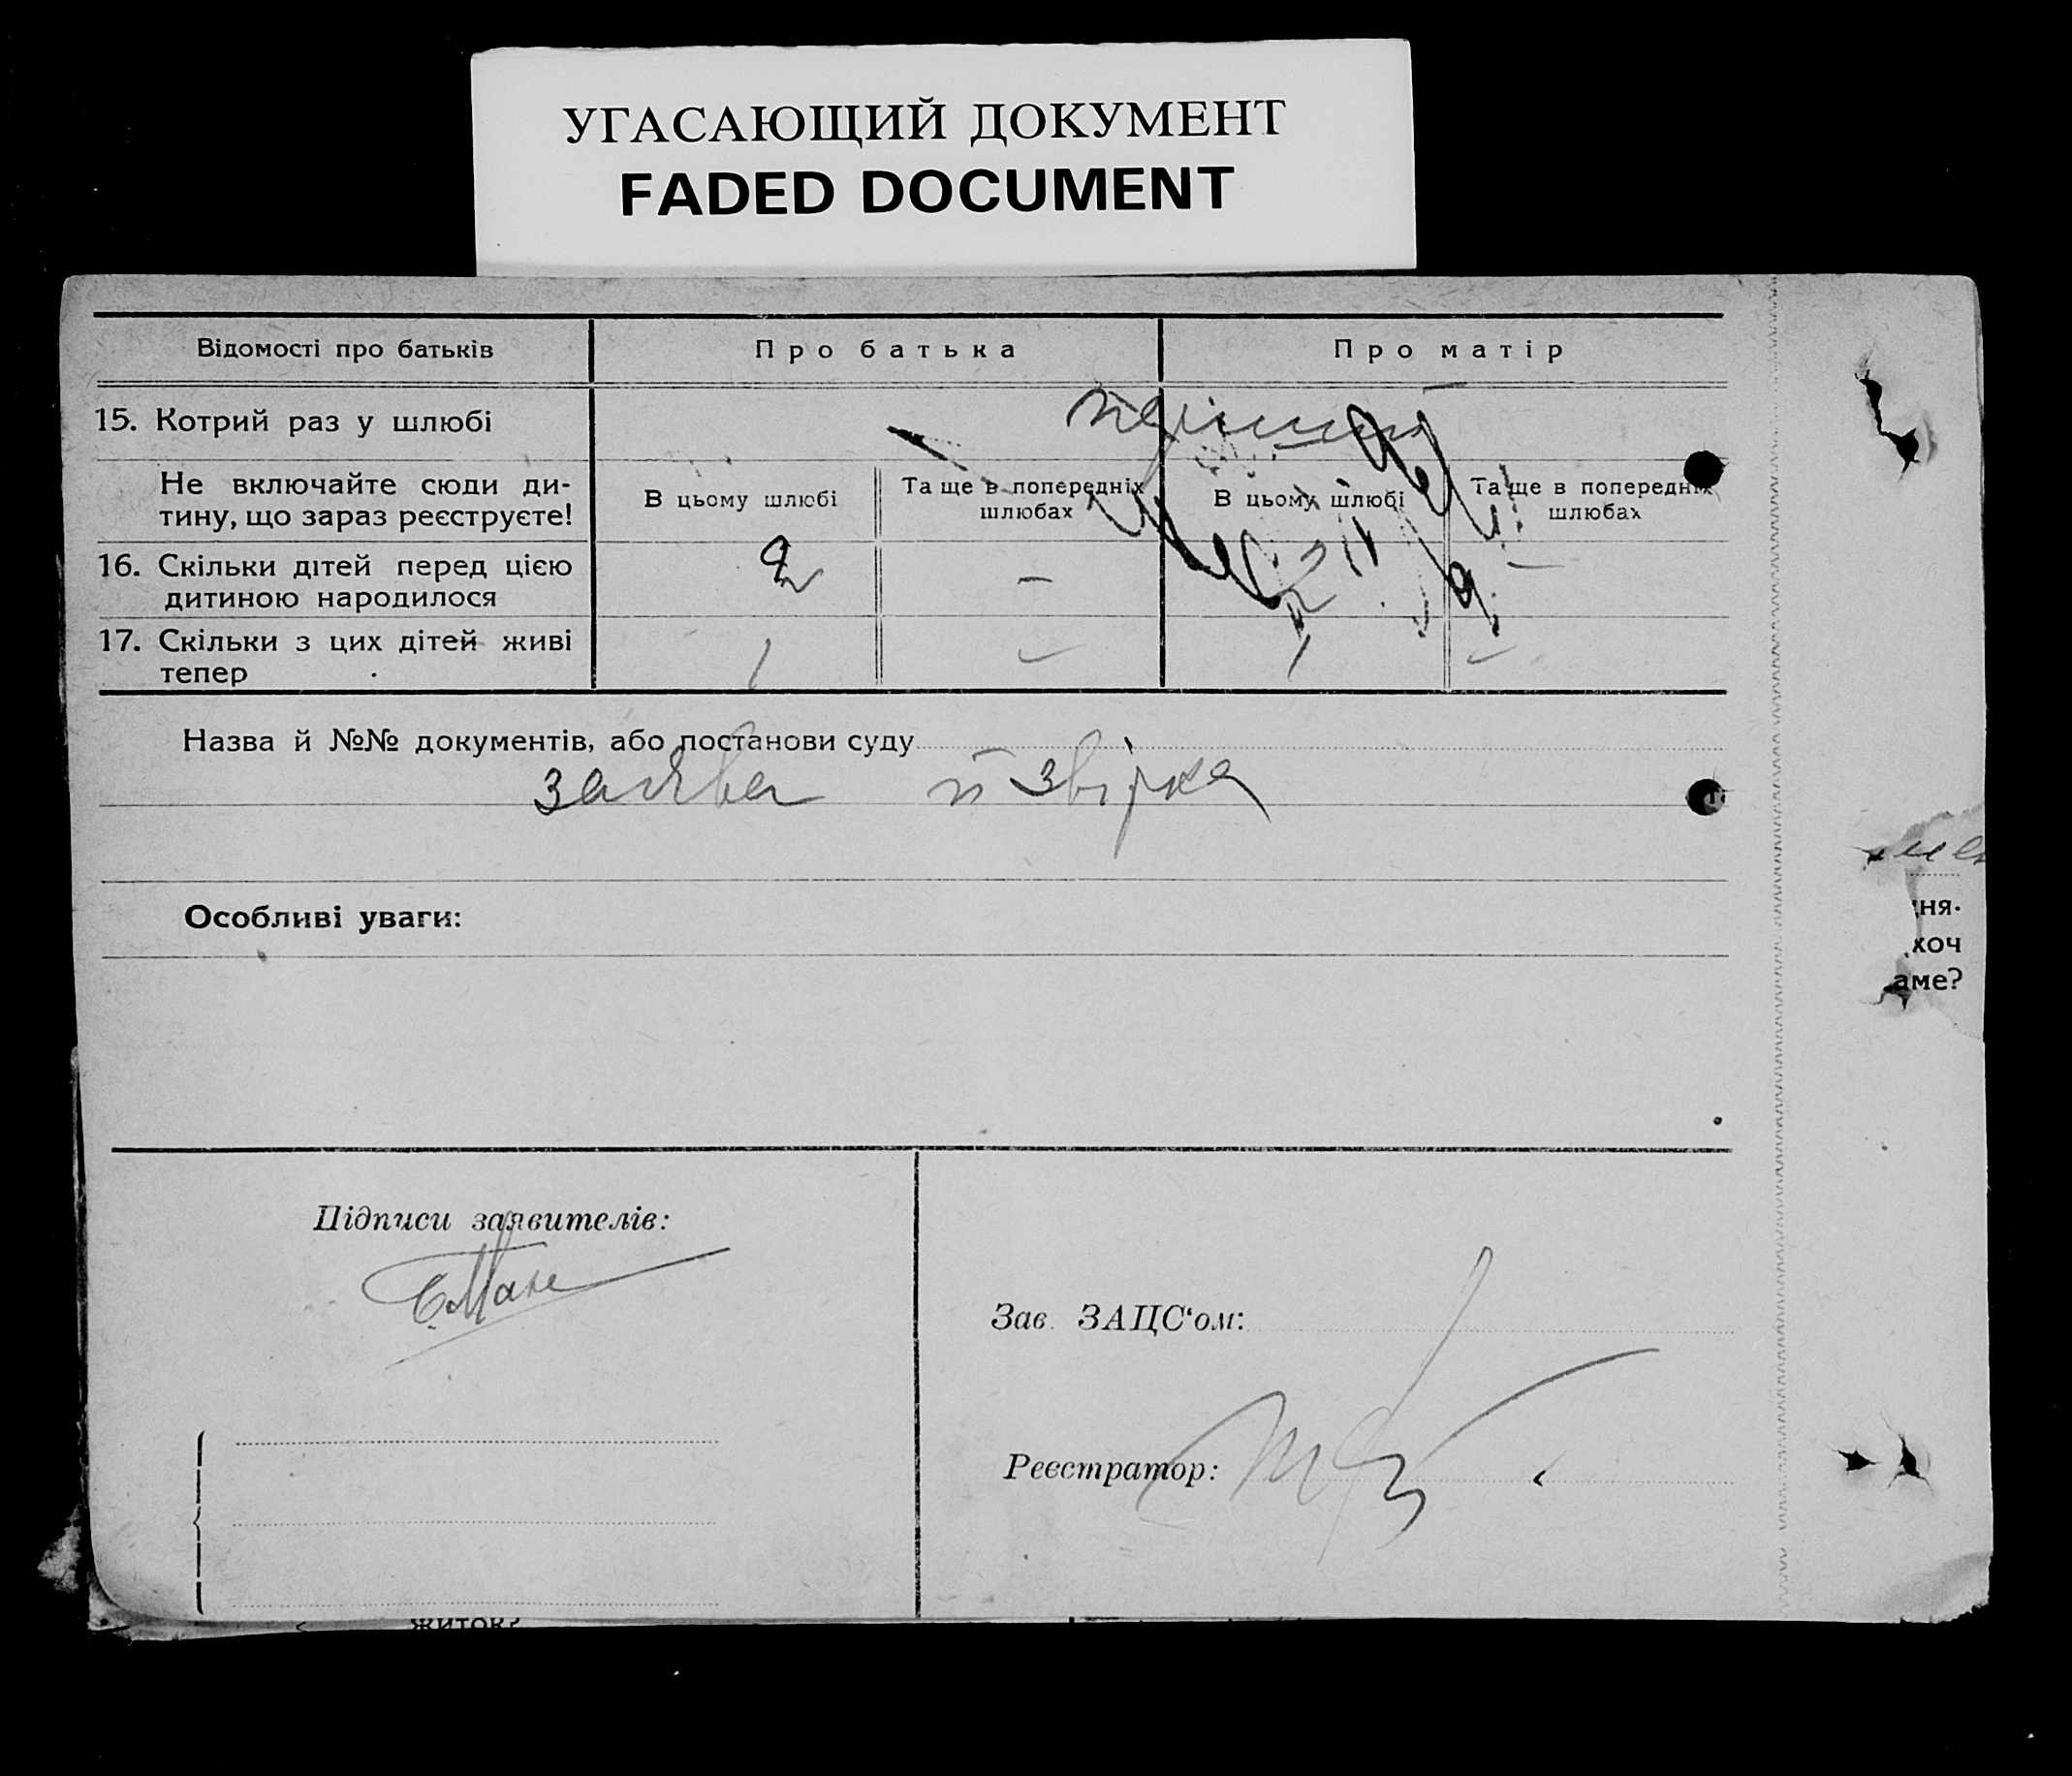 УГАСАЮЩИЙ ДОКУМЕНТ
FADED DOCUMENT
Відомості про батьків
Про батька
Про матір
15. Котрий раз у шлюбі
Не включайте сюди ди-
тину, що зараз реєструєте!
В цьому шлюбі
Та ще в попередніх
шлюбах
В цьому шлюбі
Та ще в попередніх
шлюбах
16. Скільки дітей перед цією
дитиною народилося
2 – 2 –
17. Скільки з цих дітей живі
тепер
1 – 1 –
Назва й №№ документів, або постанови суду
заява й звірка
дня-
хоч
аме?
Особливі уваги:
Підписи заявителів:
Зав. ЗАЦС'ом:
Реєстратор:
житок?